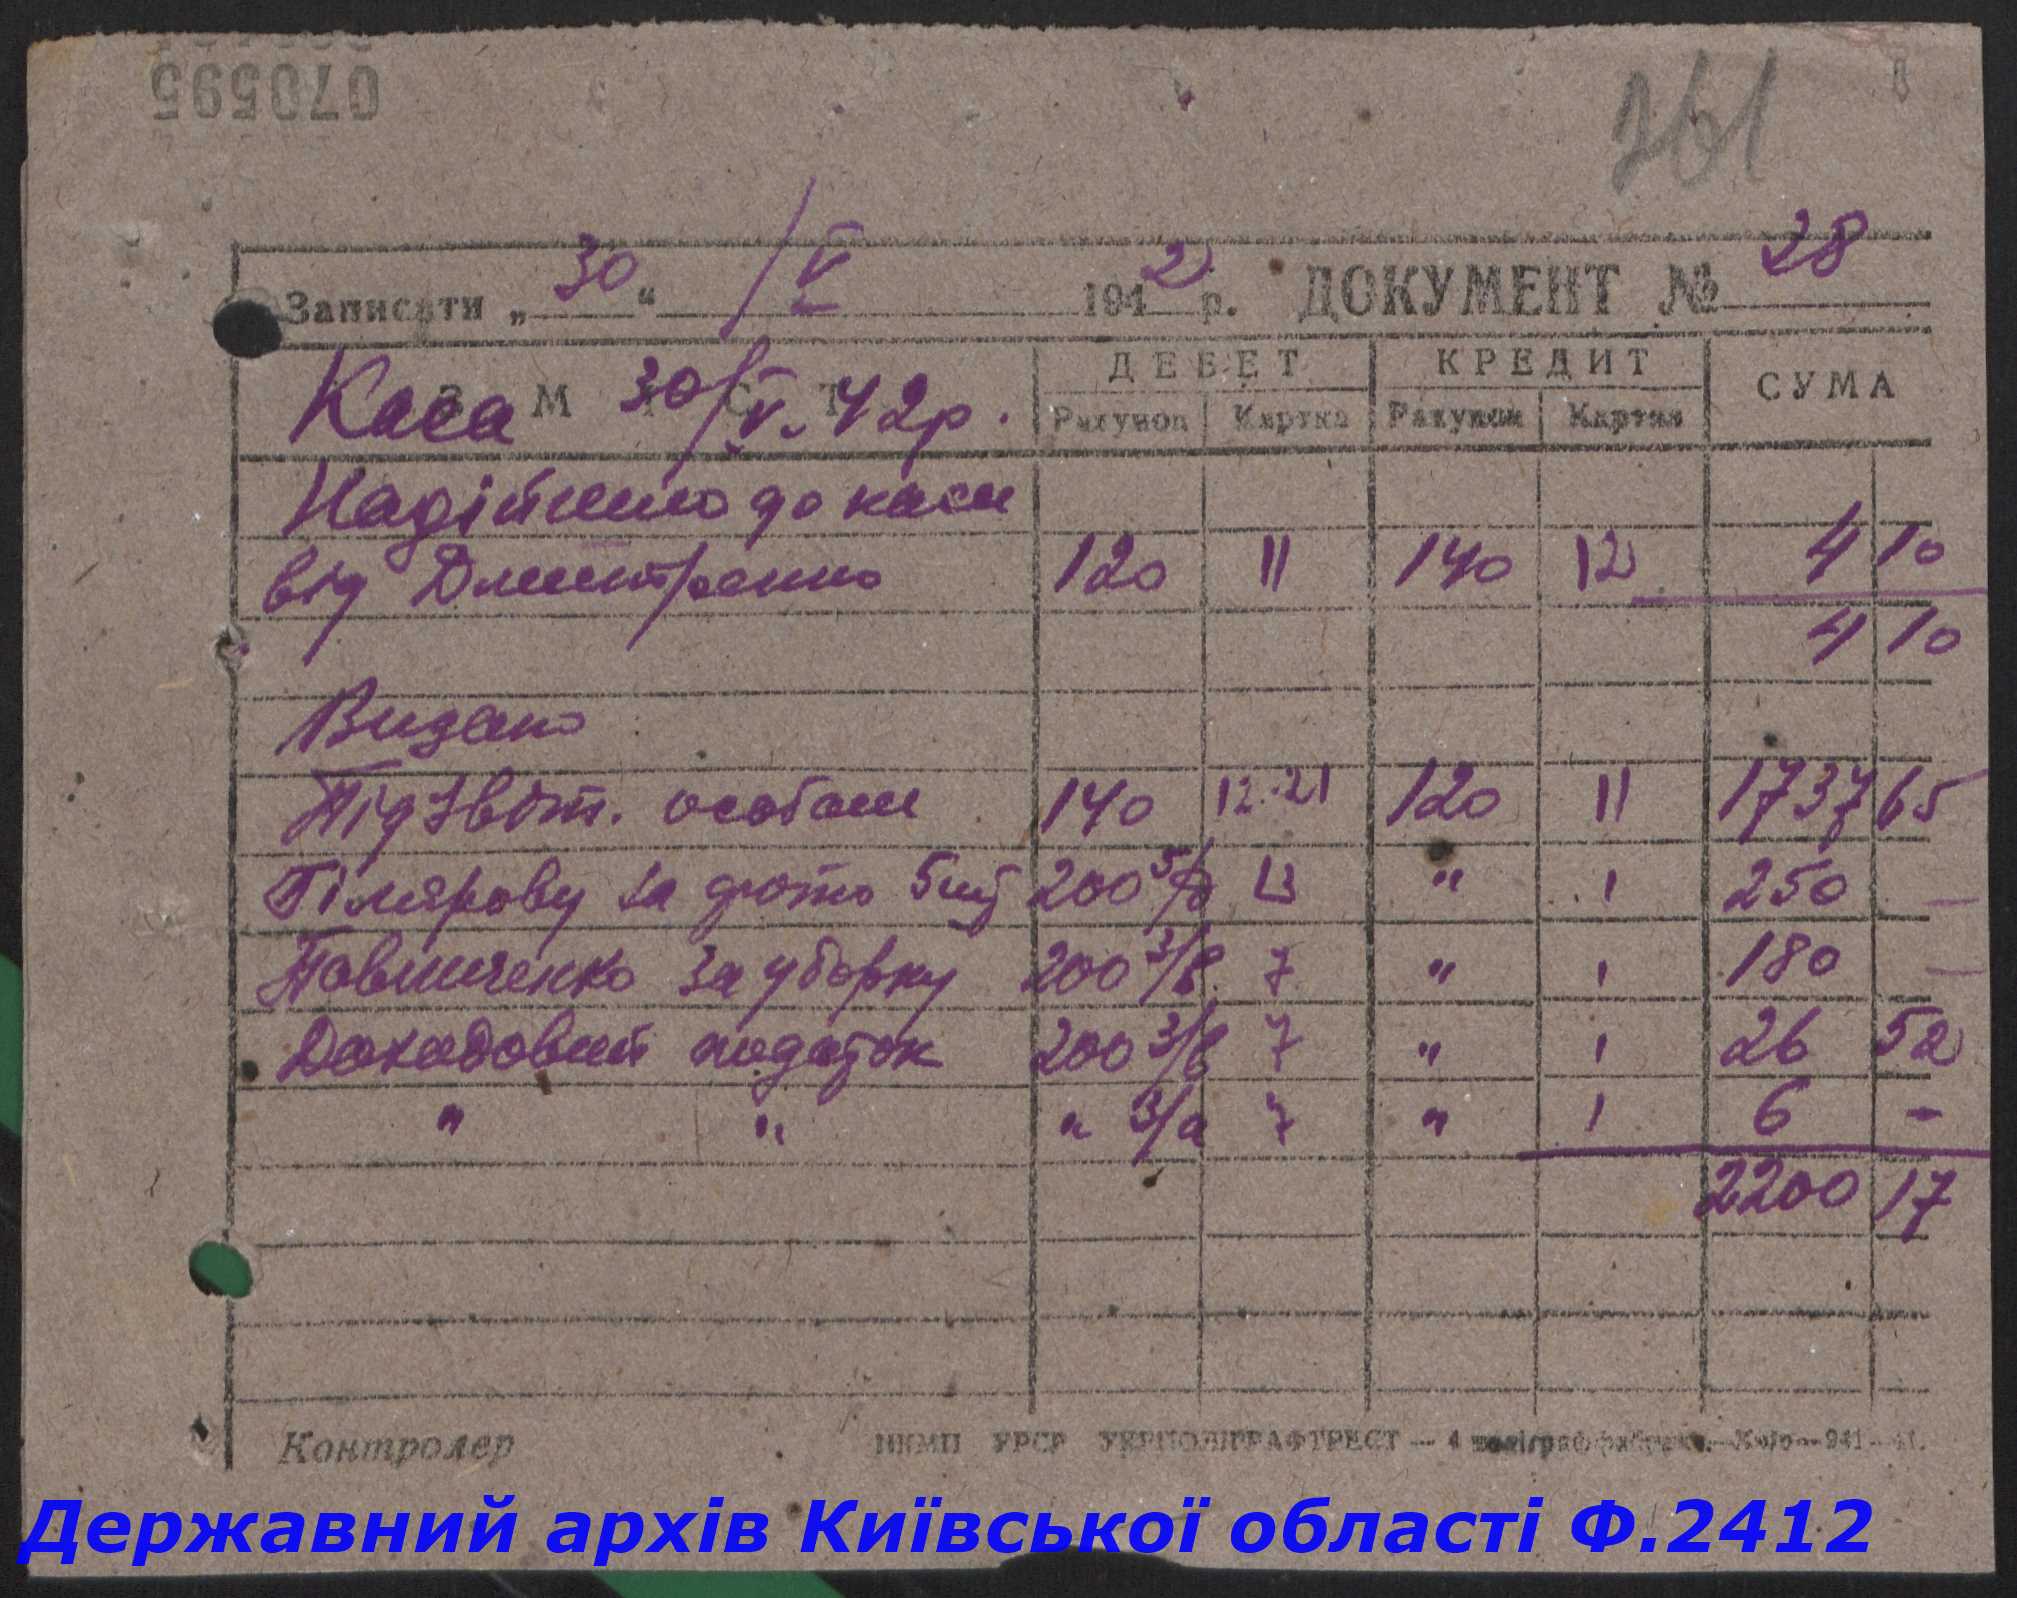 070595
261
Записати „ 30 “ / V 1942 р. ДОКУМЕНТ № 28
ЗМІСТ ДЕБЕТ КРЕДИТ СУМА
Каса 30/V.42р. Рахунок Картка Рахунок Картка
Надійшло до каси
від Дмитренко 120 11 140 12 4 10
4 10
Видано
Підзвіт. особам 140 12-21 120 11 1737 65
Гілярову за фото 5шт 200 5/б 13 " ' 250 —
Товшиченко за уборку 200 3/в 7 " ' 180 —
Доходовий податок 200 3/в 7 " ' 26 52
" " " 3/а 7 " ' 6 -
2200 17
Контролер НКМП УРСР УКРПОЛІГРАФТРЕСТ — 4
Державний архів Київської області Ф.2412